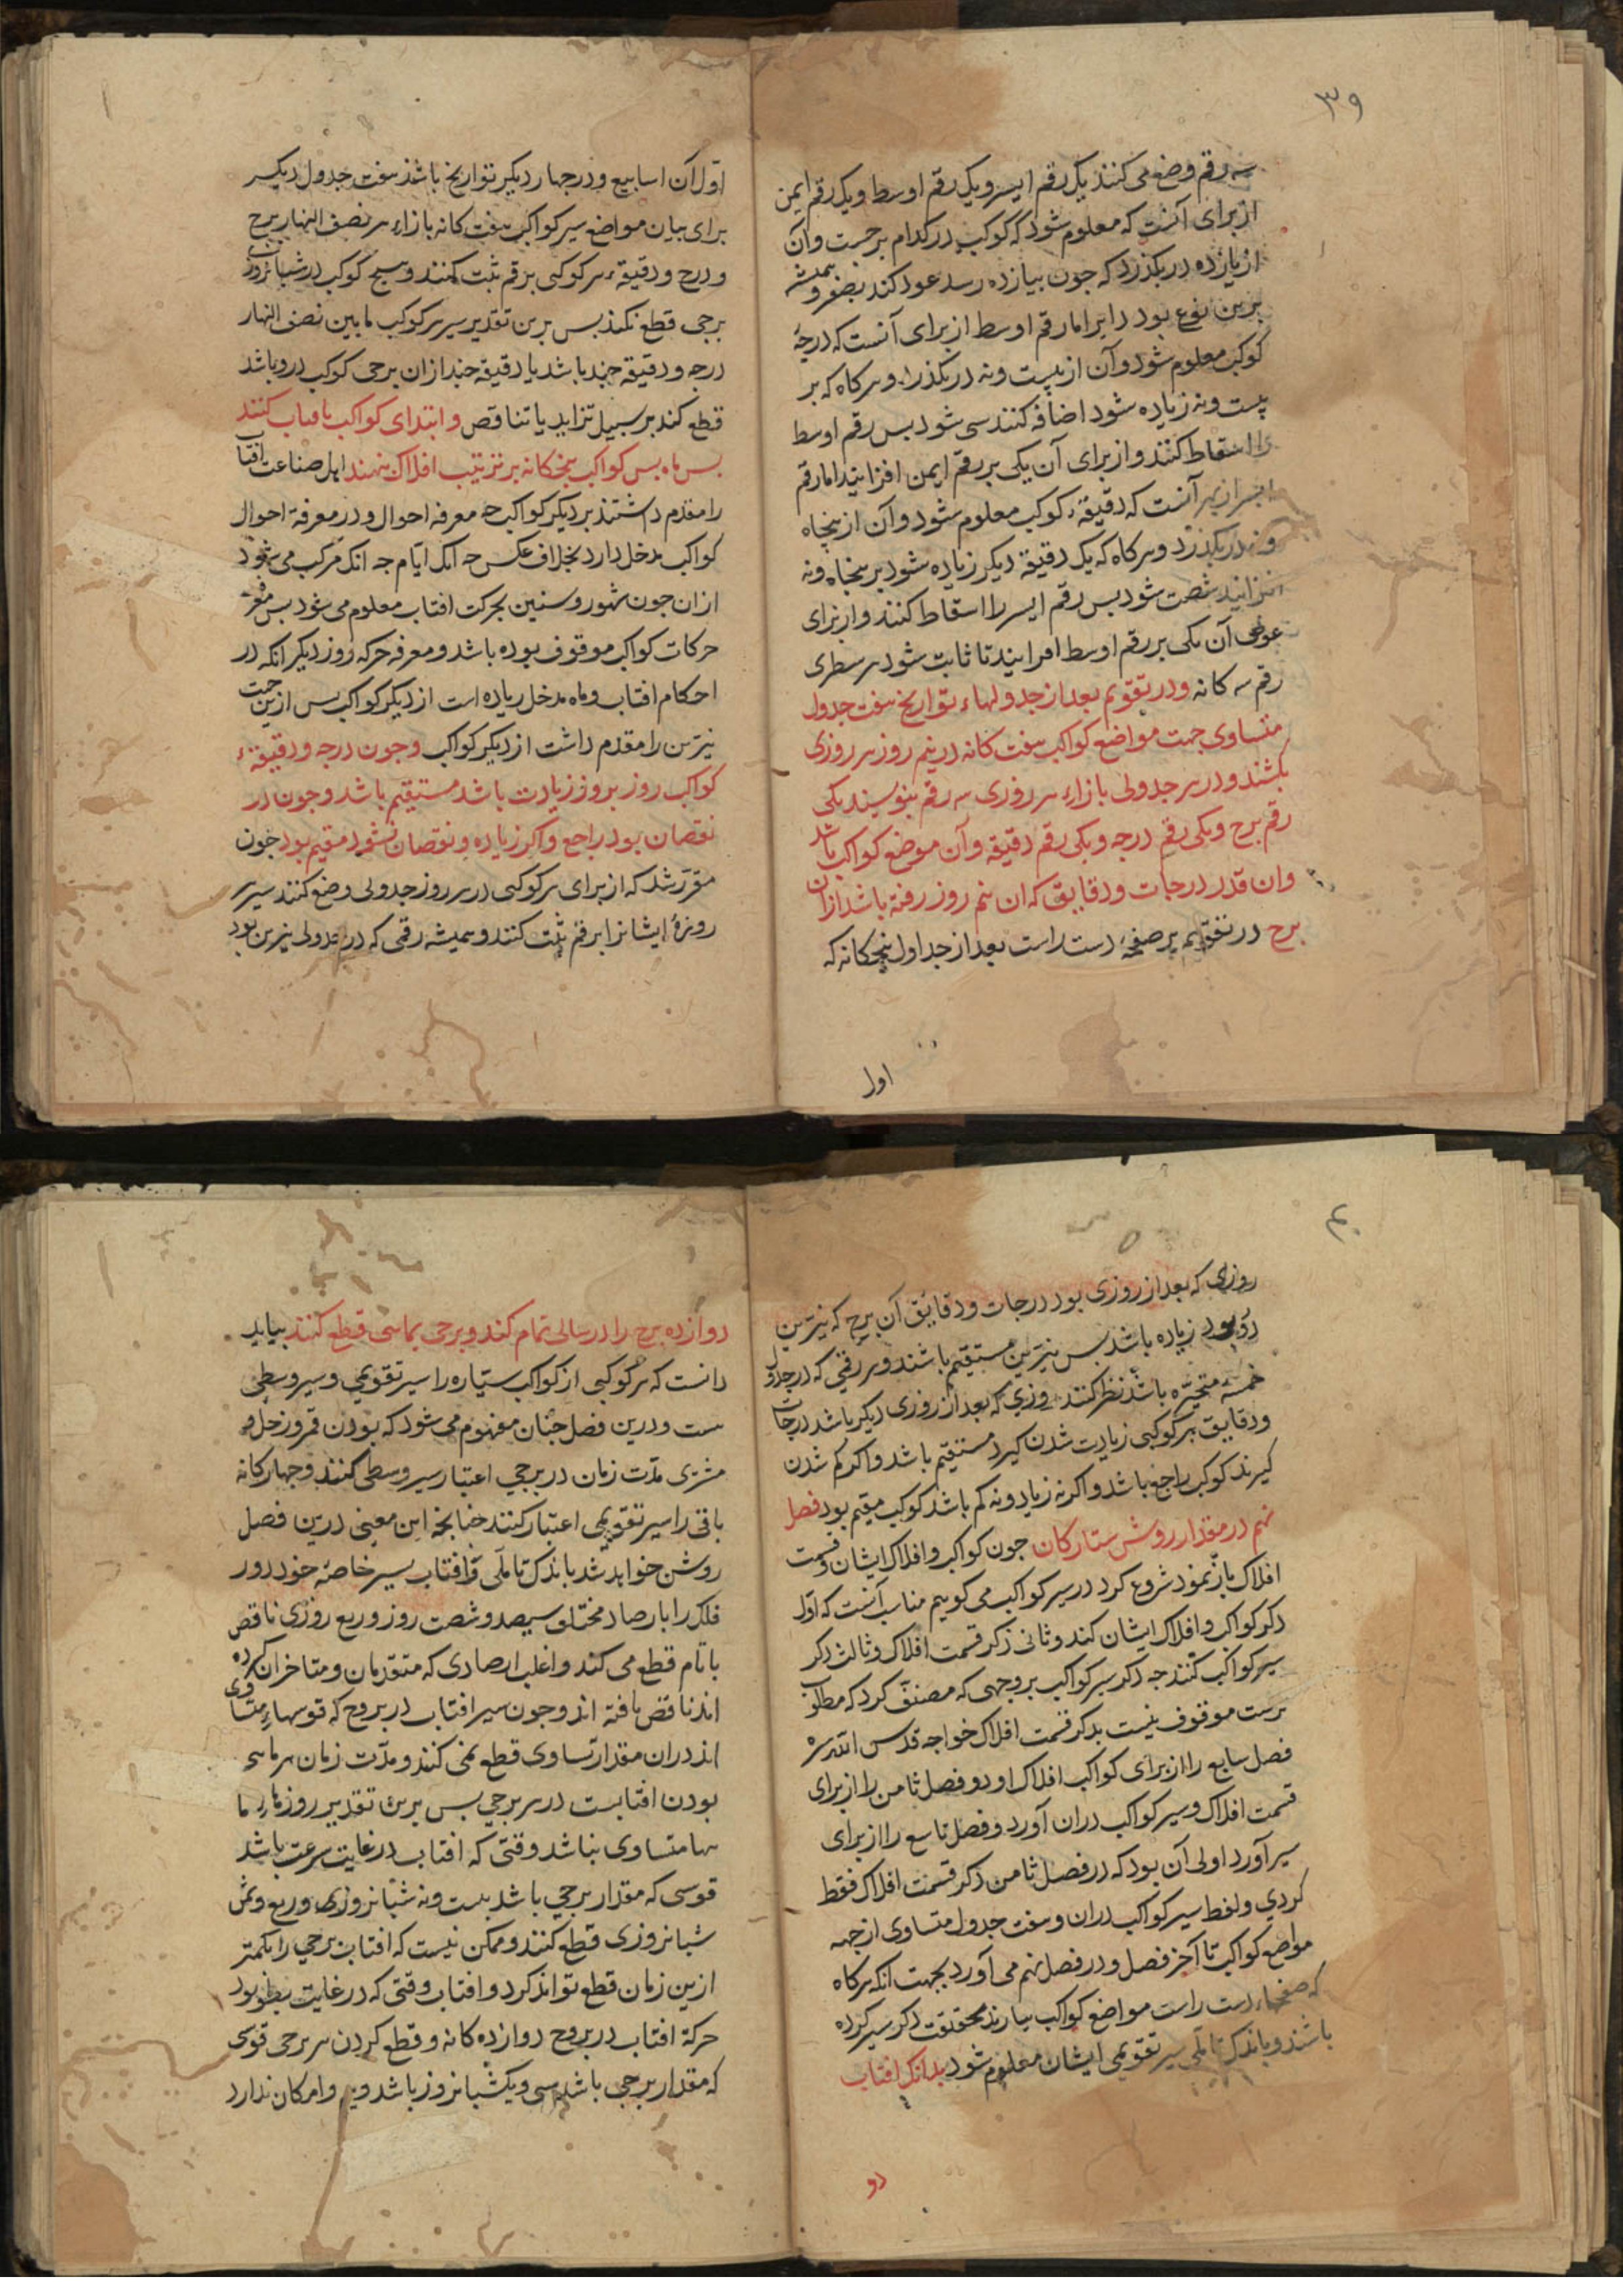 ۳۹
سه رقم وضع می کنند یک رقم ایسر و یک رقم اوسط و یک رقم ایمن
از برای آنست که معلوم شود که کوکب در کدام برجست و آن
از یازده در نکذرد که جون بیازده رسد عود کند بصفر و همیشه
برین نوع بود دایر اما رقم اوسط از برای آنست که درجهٔ
کوکب معلوم شود و آن از بیست و نه در نکذرد و هر کاه که بر
بیست و نه زیاده شود اضافه کنند سی شود بس رقم اوسط
را اسقاط کنند و از برای آن یکی بر رقم ایمن افزایند اما رقم
ایسر از بهر آنست که دقیقهٔ کوکب معلوم شود و آن از بنجاه
و نه در نکذرد و هر کاه که یک دقیقه دیکر زیاده شود بر بنجاه و نه
افزایند شصت شود بس رقم ایسر را اسقاط کنند و از برای
عوض آن یکی بر رقم اوسط افزایند تا ثابت شود هر سطری
رقم سه کانه و در تقویم بعد از جدولهاء تواریخ هفت جدول
متساوی جهت مواضع کواکب هفت کانه در نیم روز هر روزی
بکشند و در هر جدولی بازاء هر روزی سه رقم بنویسند یکی
رقم برج و یکی رقم درجه و یکی رقم دقیقه و آن موضع کواکب باشد
وان قدر درجات و دقایق که ان نیم روز رفته باشد ازان
برج در تقویم بر صفحهٔ دست راست بعد از جداول بنجکانه که
اول
اول آن اسابیع و در جهار دیکر تواریخ باشد هفت جدول دیکر
برای بیان مواضع سیر کواکب هفت کانه بازاء هر نصف النهار برج
و درج و دقیقهٔ هر کوکبی برقم ثبت کنند و هیج کوکب در شبانروزی
برجی قطع نکند بس برین تقدیر سیر هر کوکب مابین نصف النهار
درجه و دقیقه جند باشد یا دقیقه جند ازان برجی کوکب درو باشد
قطع کند بر سبیل تزاید یا تناقص و ابتدای کواکب بافتاب کنند
بس ماه بس کواکب بنجکانه بر ترتیب افلاک نهند اهل صناعت افتاب
را مقدم داشتند بر دیکر کواکب جه معرفه احوال و در معرفة احوال
کواکب مدخل دارد بخلاف عکس جه انک ایام جه انک مرکب می شود
ازان جون شهور و سنین بحرکت افتاب معلوم می شود بس معرفة
حرکات کواکب موقوف بوده باشد و معرفه حرکه روز دیکر انکه در
احکام افتاب و ماه مدخل زیاده است از دیکر کواکب بس ازین جهت
نیرین را مقدم داشت از دیکر کواکب و جون درجه و دقیقهٔ
کواکب روز بروز زیادت باشد مستقیم باشد و جون در
نقصان بود راجع و اکر زیاده و نقصان نشود مقیم بود جون
مقرر شد که از برای هر کوکبی در هر روز جدولی وضع کنند سیر
روزهٔ ایشانرا برقم ثبت کنند و همیشه رقمی که در جدولی نیرین بود
۴۰
روزی که بعد از روزی بود درجات و دقایق آن برج که نیرین
درو بود زیاده باشد بس نیرین مستقیم باشند و هر رقمی که در جدول
خمسهٔ متحیره باشد نظر کنند روزی که بعد از روزی دیکر باشد درجات
و دقایق هر کوکبی زیادت شدن کیرد مستقیم باشد و اکر کم شدن
کیرند کوکب راجع باشد و اکر نه زیاد و نه کم باشد کوکب مقیم بود فصل
نهم در مقدار روش ستارکان جون کواکب و افلاک ایشان و قسمت
افلاک باز نمود شروع کرد در سیر کواکب می کوییم مناسب آنست که اول
ذکر کواکب و افلاک ایشان کند و ثانی ذکر قسمت افلاک و ثالث ذکر
سیر کواکب کنند جه ذکر سیر کواکب بر وجهی که مصنف کرد که مطلوب
برست موقوف نیست بذکر قسمت افلاک خواجه قدس الله سره
فصل سابع را از برای کواکب افلاک اورد و فصل ثامن را از برای
قسمت افلاک و سیر کواکب دران آورد و فصل تاسع را از برای
سیر آورد اولی آن بود که در فصل ثامن ذکر قسمت افلاک فقط
کردی و لفظ سیر کواکب دران و هفت جدول متساوی از جهه
مواضع کواکب تا آخر فصل و در فصل نهم می آورد بجهت انکه هر کاه
که صفحهاء دست راست مواضع کواکب بیارند محققت ذکر سیر کرده
باشند و باندک تاملی سیر تقویمی ایشان معلوم شود بدانک افتاب
دو
دوازده برج را در سالی تمام کند و برجی بماهی قطع کنند بباید
دانست که هر کوکبی از کواکب سیاره را سیر تقویمی و سیر وسطی
ست و درین فصل جنان مفهوم می شود که بودن قمر و زحل و
مشتری مدت زمان در برجی اعتبار سیر وسطی کنند و جهارکانه
باقی را سیر تقویمی اعتبار کنند جنانجه این معنی درین فصل
روشن خواهد شد باندک تاملی و افتاب بسیر خاصهٔ خود دور
فلک را بارصاد مختلف سیصد و شصت روز و ربع روزی ناقص
یا تام قطع می کند و اغلب ارصادی که متقدمان و متاخران کرده
اند ناقص یافته اند و جون سیر افتاب در بروج که قوسهاء متساوی
اند دران مقدار تساوی قطع نمی کنند و مدت زمان هر ماهی
بودن افتابست در هر برجی بس برین تقدیر روزهاء ما
هها متساوی نباشد وقتی که افتاب در غایت سرعت باشد
قوسی که مقدار برجی باشد بیست و نه شبانروزی و ربع و ثمن
شبانروزی قطع کنند و ممکن نیست که افتاب برجی را بکمتر
ازین زمان قطع تواند کرد و افتاب وقتی که در غایت بطو بود
حرکة افتاب در بروج دوازده کانه و قطع کردن هر برجی قوسی
که مقدار برجی باشد سی و یک شبانروز باشد و امکان ندارد